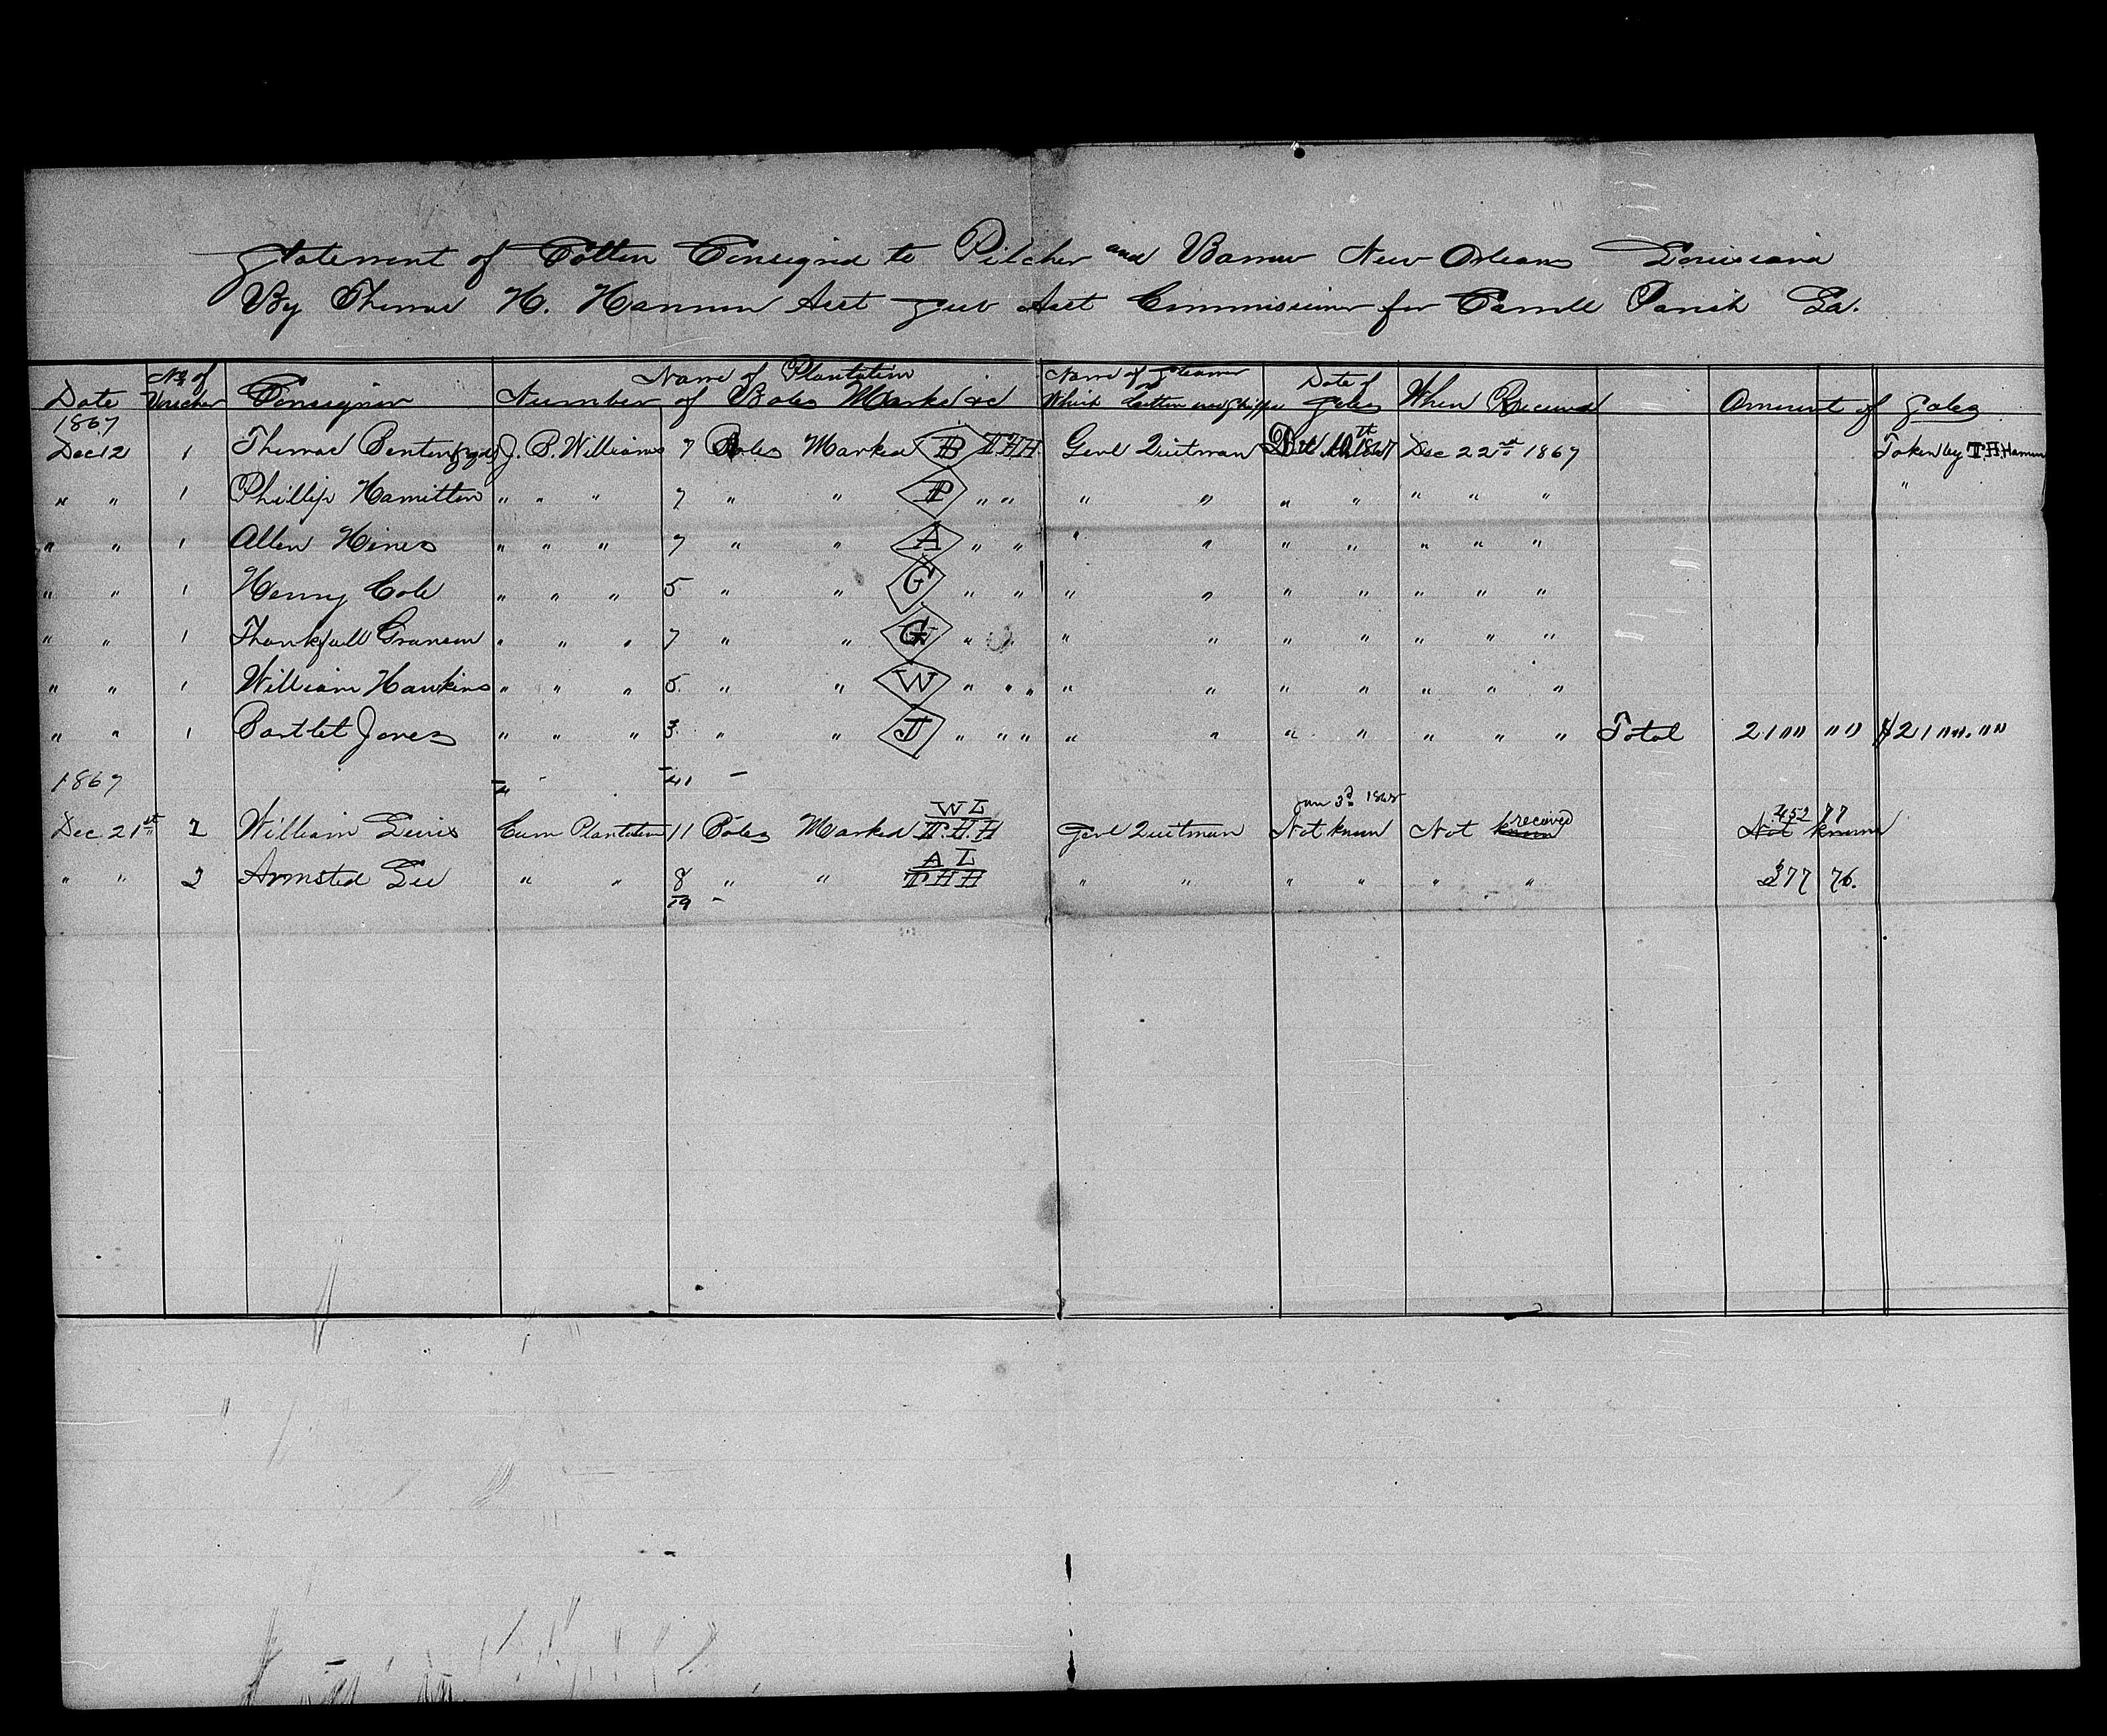 Statement of Cotton Consigned to Pilcher and Barrow New Orleans Louisiana
By Thomas H. Hannon Asst Sub Asst Commissioner for Carroll Parish La.
Date No of Voucher Consignor Name of Plantation Number of Bales Marks &c Name of Steamer on Which Cotton was Shipped Date of Sales When Received Amount of Sales
1867
Dec 12 1 Thomas Benton J. B. Williams 7 Bales Marked B T.H.H. Genl Quitman 1867 Dec 22nd 1867 Taken by T.H. Hannon
" " 1 Phillip Hamilton " " " 7 " " P " " " " " " " " " "
" " 1 Allen Hines " " " 7 " " A " " " " " " " " "
" " 1 Henry Cole " " " 5 " " C " " " " " " " " "
" " 1 Thankfull Granson " " " 7 " " G " " " " " " " " "
" " 1 William Hawkins " " " 5. " " W " " " " " " " " " "
" " 1 Bartlet Jones " " " 3. " " J " " " " " " " " " " Total 2100 00 $2100.00
1867 41 –
Dec 21st 2 William Lewis Plantation 11 Bales Marked WL T.H.H Genl Quitman Jan 3d 1868 Not known Not known received 452 77 Not known
" " 2 Armsted Lee " " 8 " " AL THH " " " " " " 377 76.
19 –